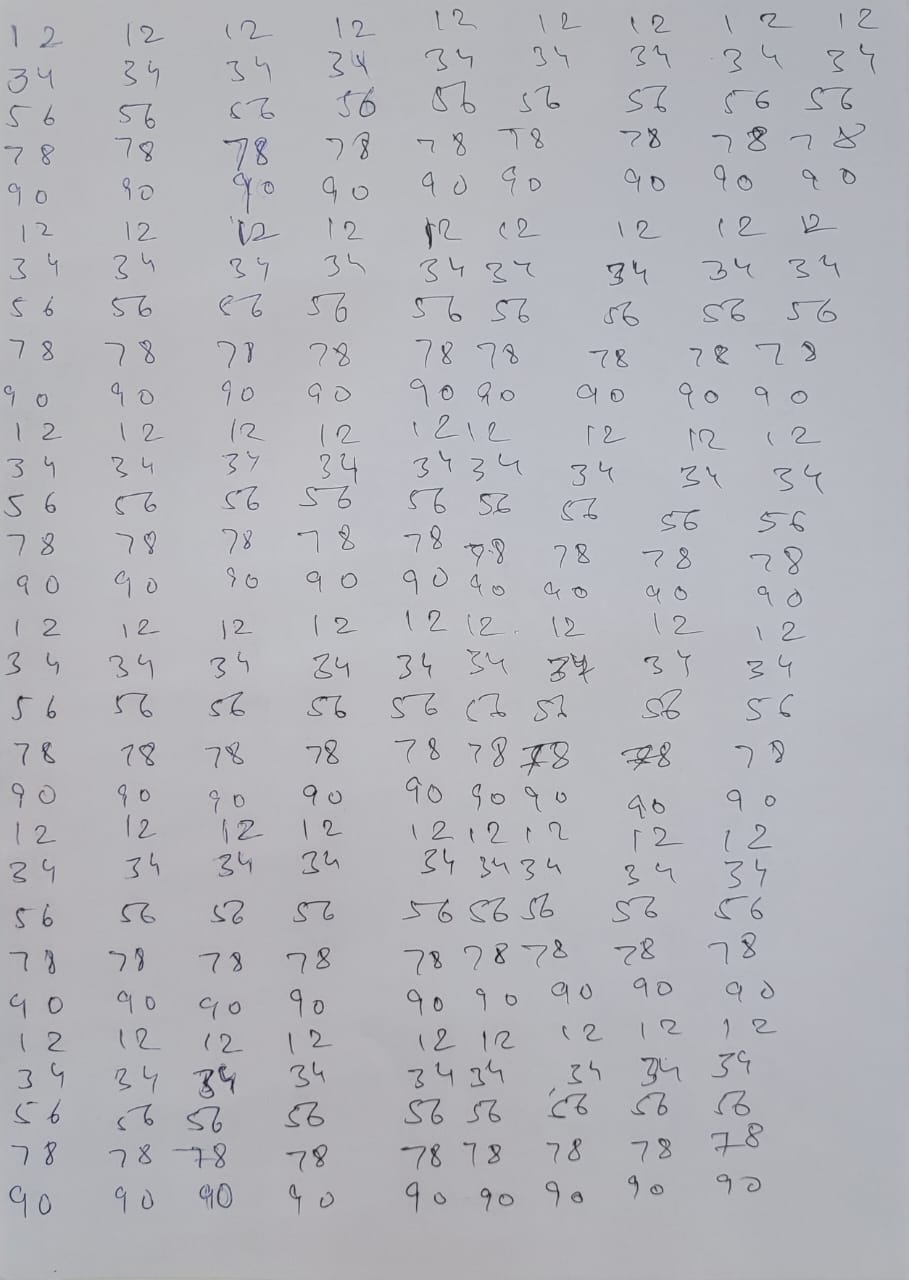 12 12 12 12 12 12 12 12 12
34 34 34 34 34 34 34 34 34
56 56 56 56 56 56 56 56 56
78 78 78 78 78 78 78 78 78
90 90 90 90 90 90 90 90 90
12 12 12 12 12 12 12 12 12
34 34 34 34 34 34 34 34 34
56 56 56 56 56 56 56 56 56
78 78 78 78 78 78 78 78 78
90 90 90 90 90 90 90 90 90
12 12 12 12 12 12 12 12 12
34 34 34 34 34 34 34 34 34
56 56 56 56 56 56 56 56 56
78 78 78 78 78 78 78 78 78
90 90 90 90 90 90 90 90 90
12 12 12 12 12 12 12 12 12
34 34 34 34 34 34 34 34 34
56 56 56 56 56 56 56 56 56
78 78 78 78 78 78 78 78 78
90 90 90 90 90 90 90 90 90
12 12 12 12 12 12 12 12 12
34 34 34 34 34 34 34 34 34
56 56 56 56 56 56 56 56 56
78 78 78 78 78 78 78 78 78
90 90 90 90 90 90 90 90 90
12 12 12 12 12 12 12 12 12
34 34 34 34 34 34 34 34 34
56 56 56 56 56 56 56 56 56
78 78 78 78 78 78 78 78 78
90 90 90 90 90 90 90 90 90